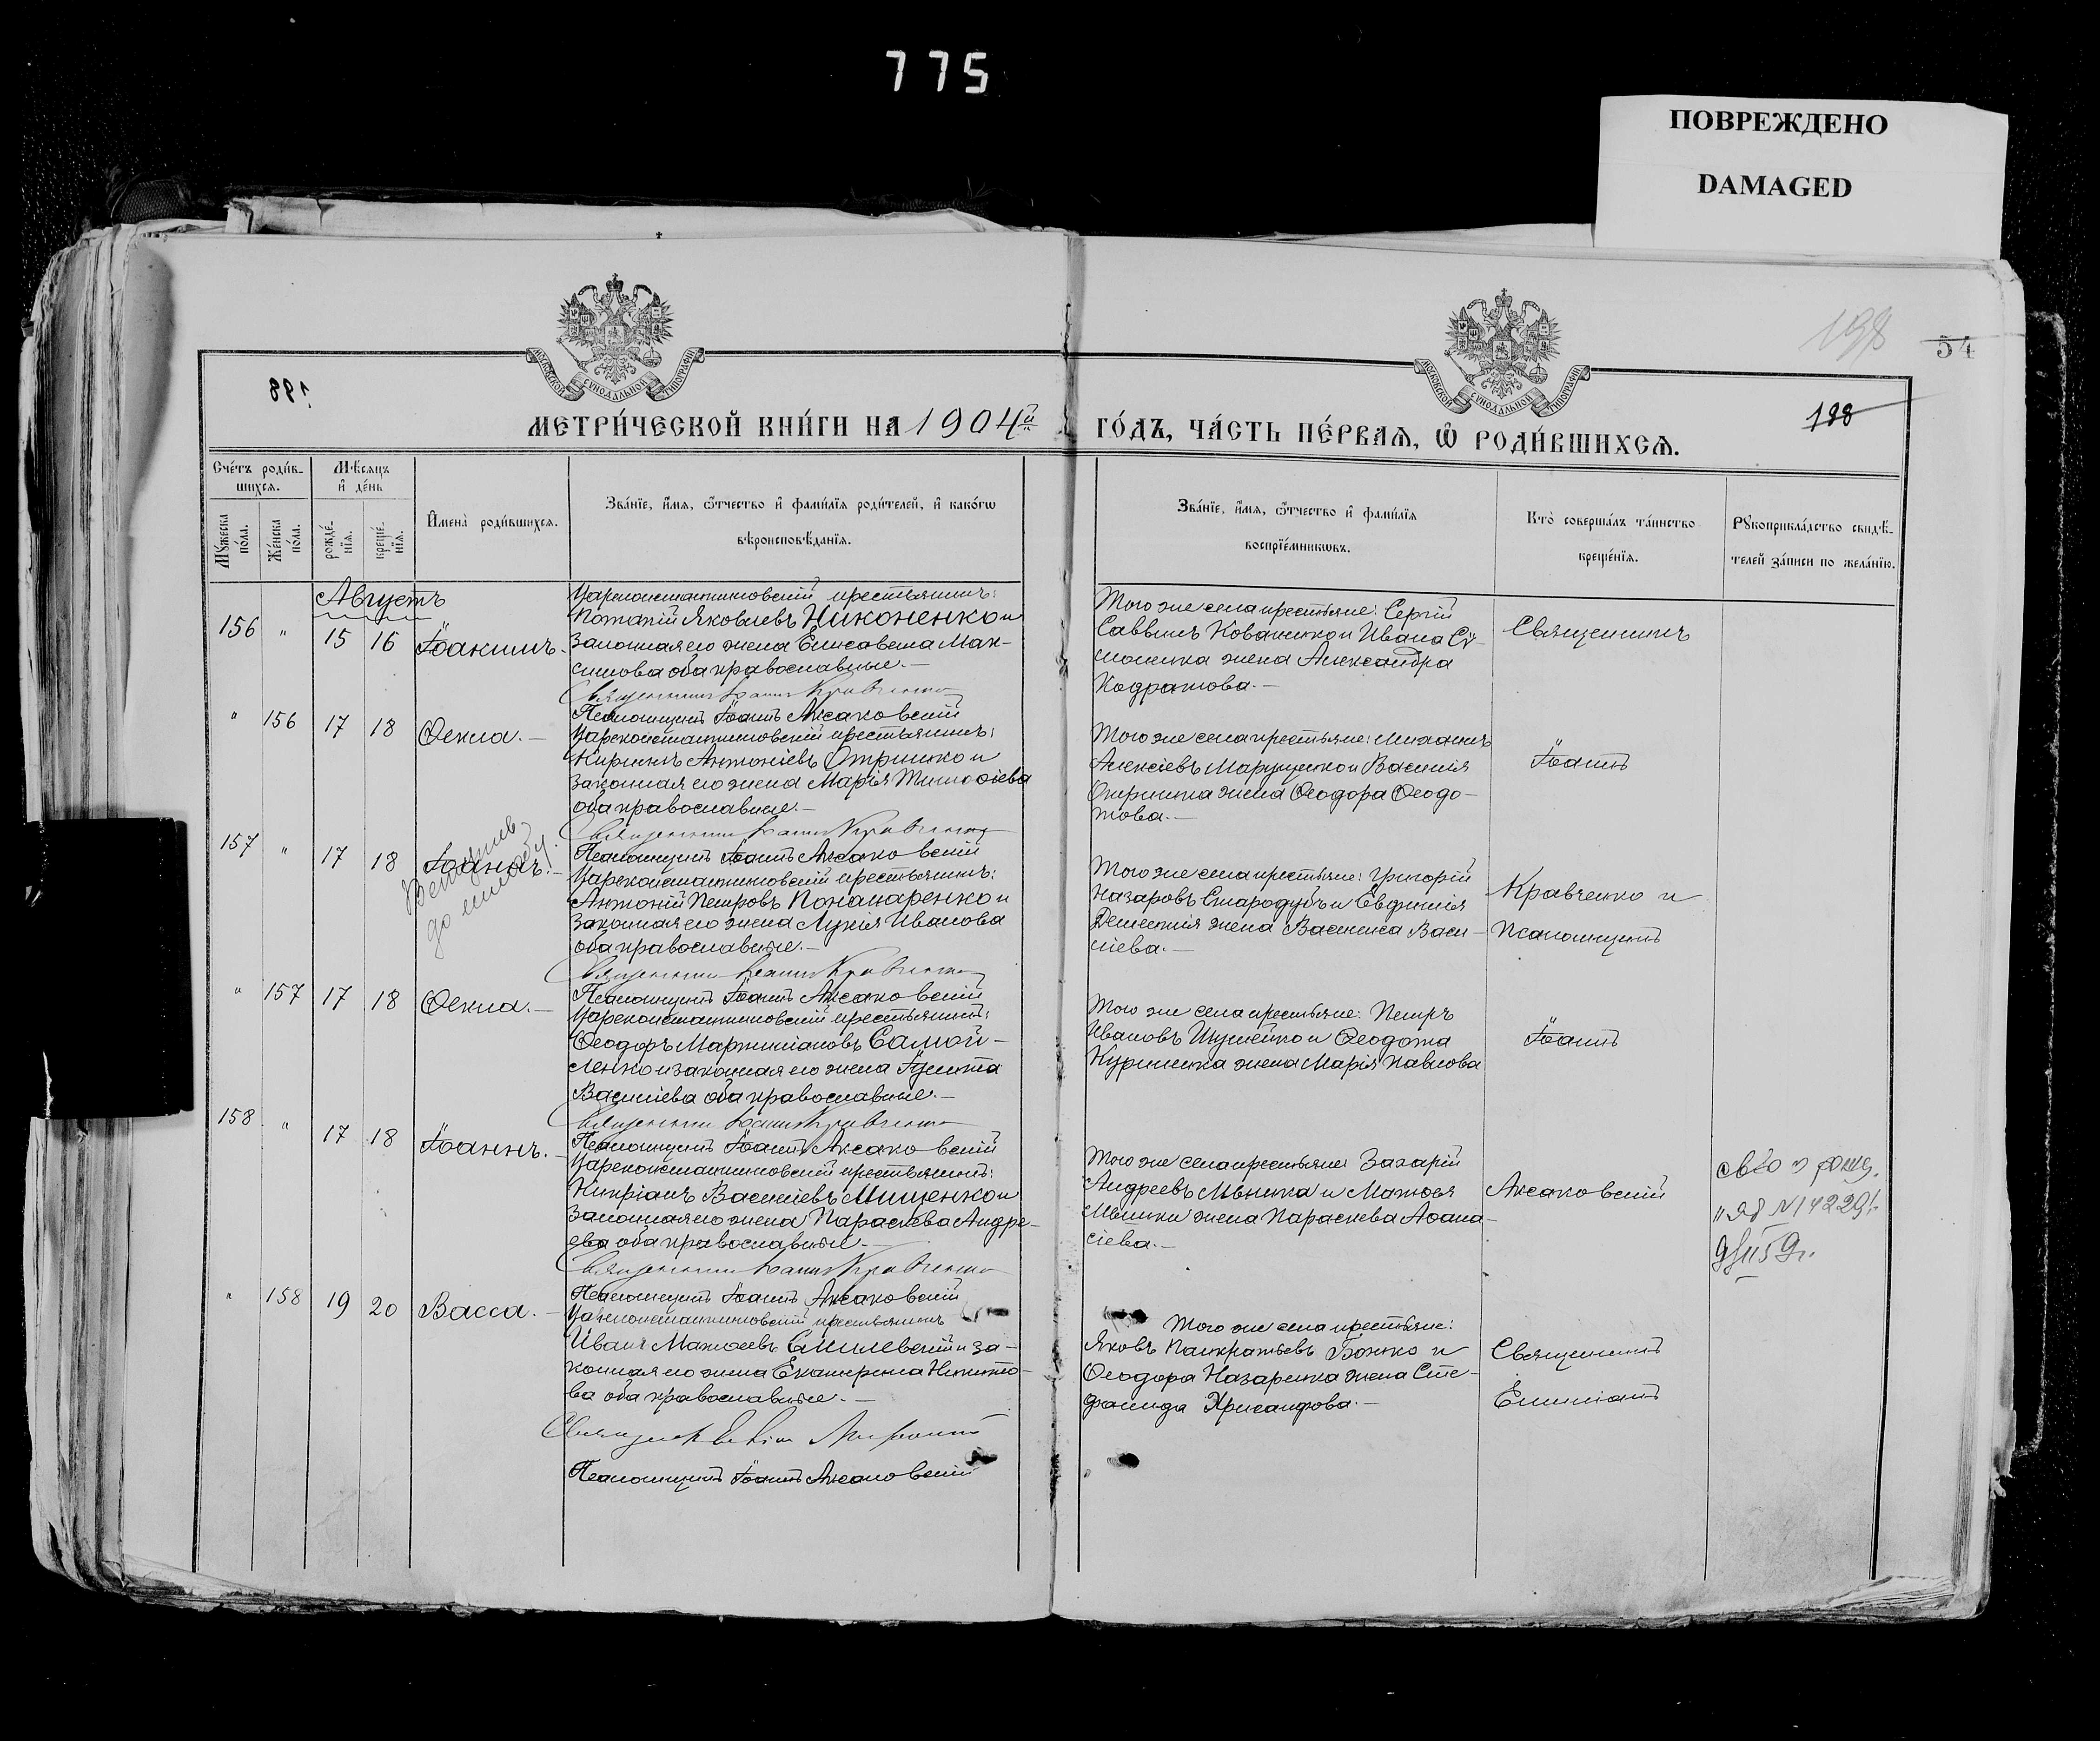 775
ПОВРЕЖДЕНО
DAMAGED
198
54
198
188
МОСКОВСКОЙ СѴНОДАЛЬНОЙ ТИПОГРАФІИ
МОСКОВСКОЙ СѴНОДАЛЬНОЙ ТИПОГРАФІИ
МЕТРИ́ЧЕСКОЙ КНИ́ГИ НА 1904й
ГО́ДЪ, ЧА́СТЬ ПЕ́РВАѦ, Ѡ҆ РОДИ́ВШИХСѦ.
Сче́тъ роди́в-
шихсѧ.
Мꙋ́жеска по́ла.
Же́нска по́ла.
Мѣ́сѧцъ
и҆ де́нь
рожде́-
нїѧ.
креще́-
нїѧ.
И҆мена̀ роди́вшихсѧ.
Зва́нїе, и҆́мѧ, ѻ҆́тчество и҆ фами́лїѧ роди́телей, и҆ како́гѡ
вѣроисповѣ́данїѧ.
Зва́нїе, и҆́мѧ, ѻ҆́тчество и҆ фами́лїѧ
воспрїе́мникѡвъ.
Кто̀ соверша́лъ та́инство
креще́нїѧ.
Рꙋкоприкла́дство свидѣ́-
телей за́писи по жела́нїю.
Августъ
156 " 15 16 Іоакимъ.-
Цареконстантиновскій крестьянинъ:
Потапій Яковлевъ Никоненко и
законная его жена Елисавета Мак-
симова оба православные.-
Священникъ Іоаннъ Кравченко
Псаломщикъ Іоаннъ Аксаковскій
Того же села крестьяне: Сергій
Саввинъ Коваленко и Ивана Си-
моненка жена Александра
Кодратова.-
Священникъ
" 156 17 18 Ѳекла.-
Цареконстантиновскій крестьянинъ:
Кириллъ Антоніевъ Отришко и
законная его жена Марія Тимоѳіева
оба православные.-
Священникъ Іоаннъ Кравченко
Псаломщикъ Іоаннъ Аксаковскій
Того же села крестьяне: Михаилъ
Алексіевъ Марущенко и Василія
жена Ѳеодора Ѳеодо-
това.-
Іоаннъ
157 " 17 18 Іоаннъ.-
Цареконстантиновскій крестьянинъ:
Антоній Петровъ Понамаренко и
законная его жена Лукія Иванова
оба православные.-
Священникъ Іоаннъ Кравченко
Псаломщикъ Іоаннъ Аксаковскій
Того же села крестьяне: Григорій
Назаровъ Стародубъ и Евфимія
жена Василиса Васи-
ліева.-
Кравченко и
Псаломщикъ
" 157 17 18 Ѳекла.-
Цареконстантиновскій крестьянинъ:
Ѳеодоръ Мартиніановъ Самой-
ленко и законная его жена Іулитта
Василіева оба православные.-
Священникъ Іоаннъ Кравченко
Псаломщикъ Іоаннъ Аксаковскій
Того же села крестьяне: Петръ
Ивановъ Шулейко и Ѳеодота
жена Марія Павлова
Іоаннъ
158 " 17 18 Іоаннъ.-
Цареконстантиновскій крестьянинъ:
Кипріанъ Василіевъ Мищенко и
законная его жена Параскева Андре-
ева оба православные.-
Священникъ Іоаннъ Кравченко
Псаломщикъ Іоаннъ Аксаковскій
Того же села крестьяне Захарій
Андреевъ и Матѳея
жена Параскева Аѳана-
сіева.-
Аксаковскій
" 158 19 20 Васса.-
Цареконстантиновскій крестьянинъ
Иванъ Матѳеевъ Смилевскій и за-
конная его жена Екатерина Никито-
ва оба православные.-
Псаломщикъ Іоаннъ Аксаковскій
Того же села крестьяне:
Яковъ Панкратьевъ Божко и
Ѳеодора Назаренка жена Сте-
фанида Хрисанфова.-
Священникъ